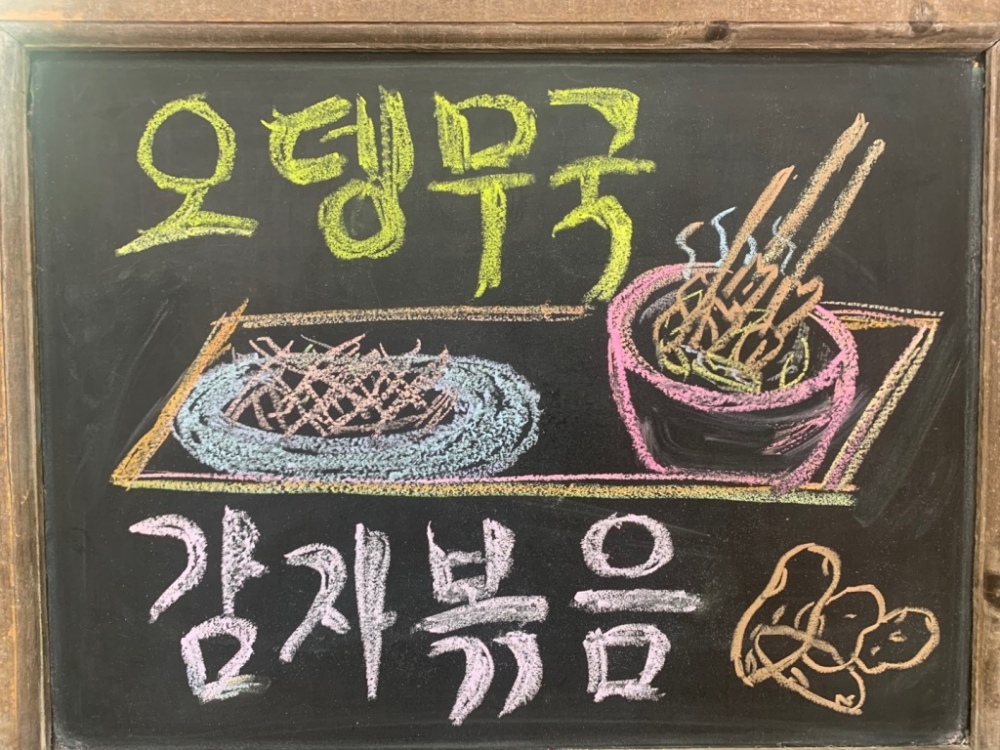 오뎅무국
감자볶음